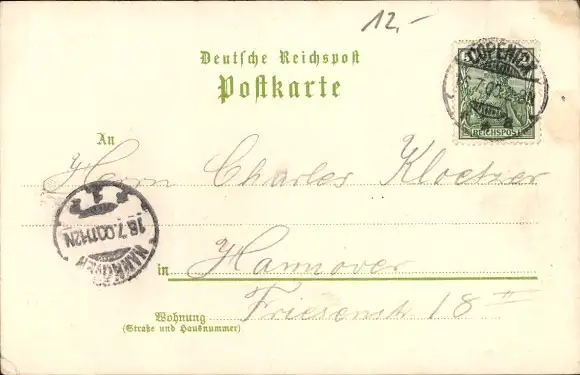 12,-
Deutsche Reichspost
Postkarte
CÖPENICK
REICHSPOST
An
Herrn Charles Kloetzer
18.7.00.11-12N
in Hannover
Friesenstr 18 II
Wohnung
(Straße und Hausnummer)